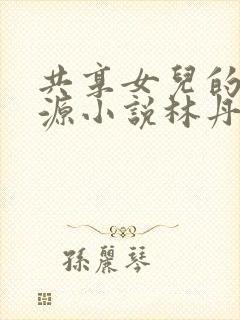 共享女兒的
源小說林丹
孫麗琴